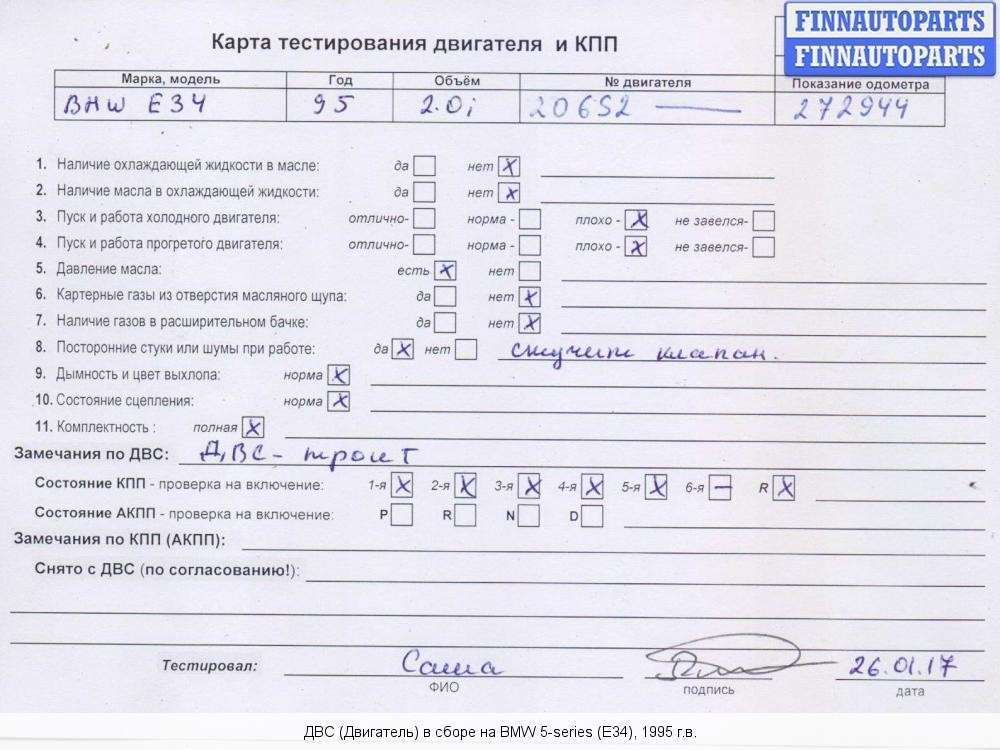 FINNAUTOPARTS
FINNAUTOPARTS
Карта тестирования двигателя и КПП
Марка, модель Год Объём № двигателя Показание одометра
BMW E34 95 2.0i 206S2 — 272944
1. Наличие охлаждающей жидкости в масле: да нет X
2. Наличие масла в охлаждающей жидкости: да нет X
3. Пуск и работа холодного двигателя: отлично- норма - плохо - X не завелся-
4. Пуск и работа прогретого двигателя: отлично- норма - плохо - X не завелся-
5. Давление масла: есть X нет
6. Картерные газы из отверстия масляного щупа: да нет X
7. Наличие газов в расширительном бачке: да нет X
8. Посторонние стуки или шумы при работе: да X нет стучит клапан.
9. Дымность и цвет выхлопа: норма X
10. Состояние сцепления: норма X
11. Комплектность : полная X
Замечания по ДВС: ДВС - троит
Состояние КПП - проверка на включение: 1-я X 2-я X 3-я X 4-я X 5-я X 6-я — R X
Состояние АКПП - проверка на включение: P R N D
Замечания по КПП (АКПП):
Снято с ДВС (по согласованию!):
Тестировал: Саша 26.01.17
ФИО подпись дата
ДВС (Двигатель) в сборе на BMW 5-series (E34), 1995 г.в.